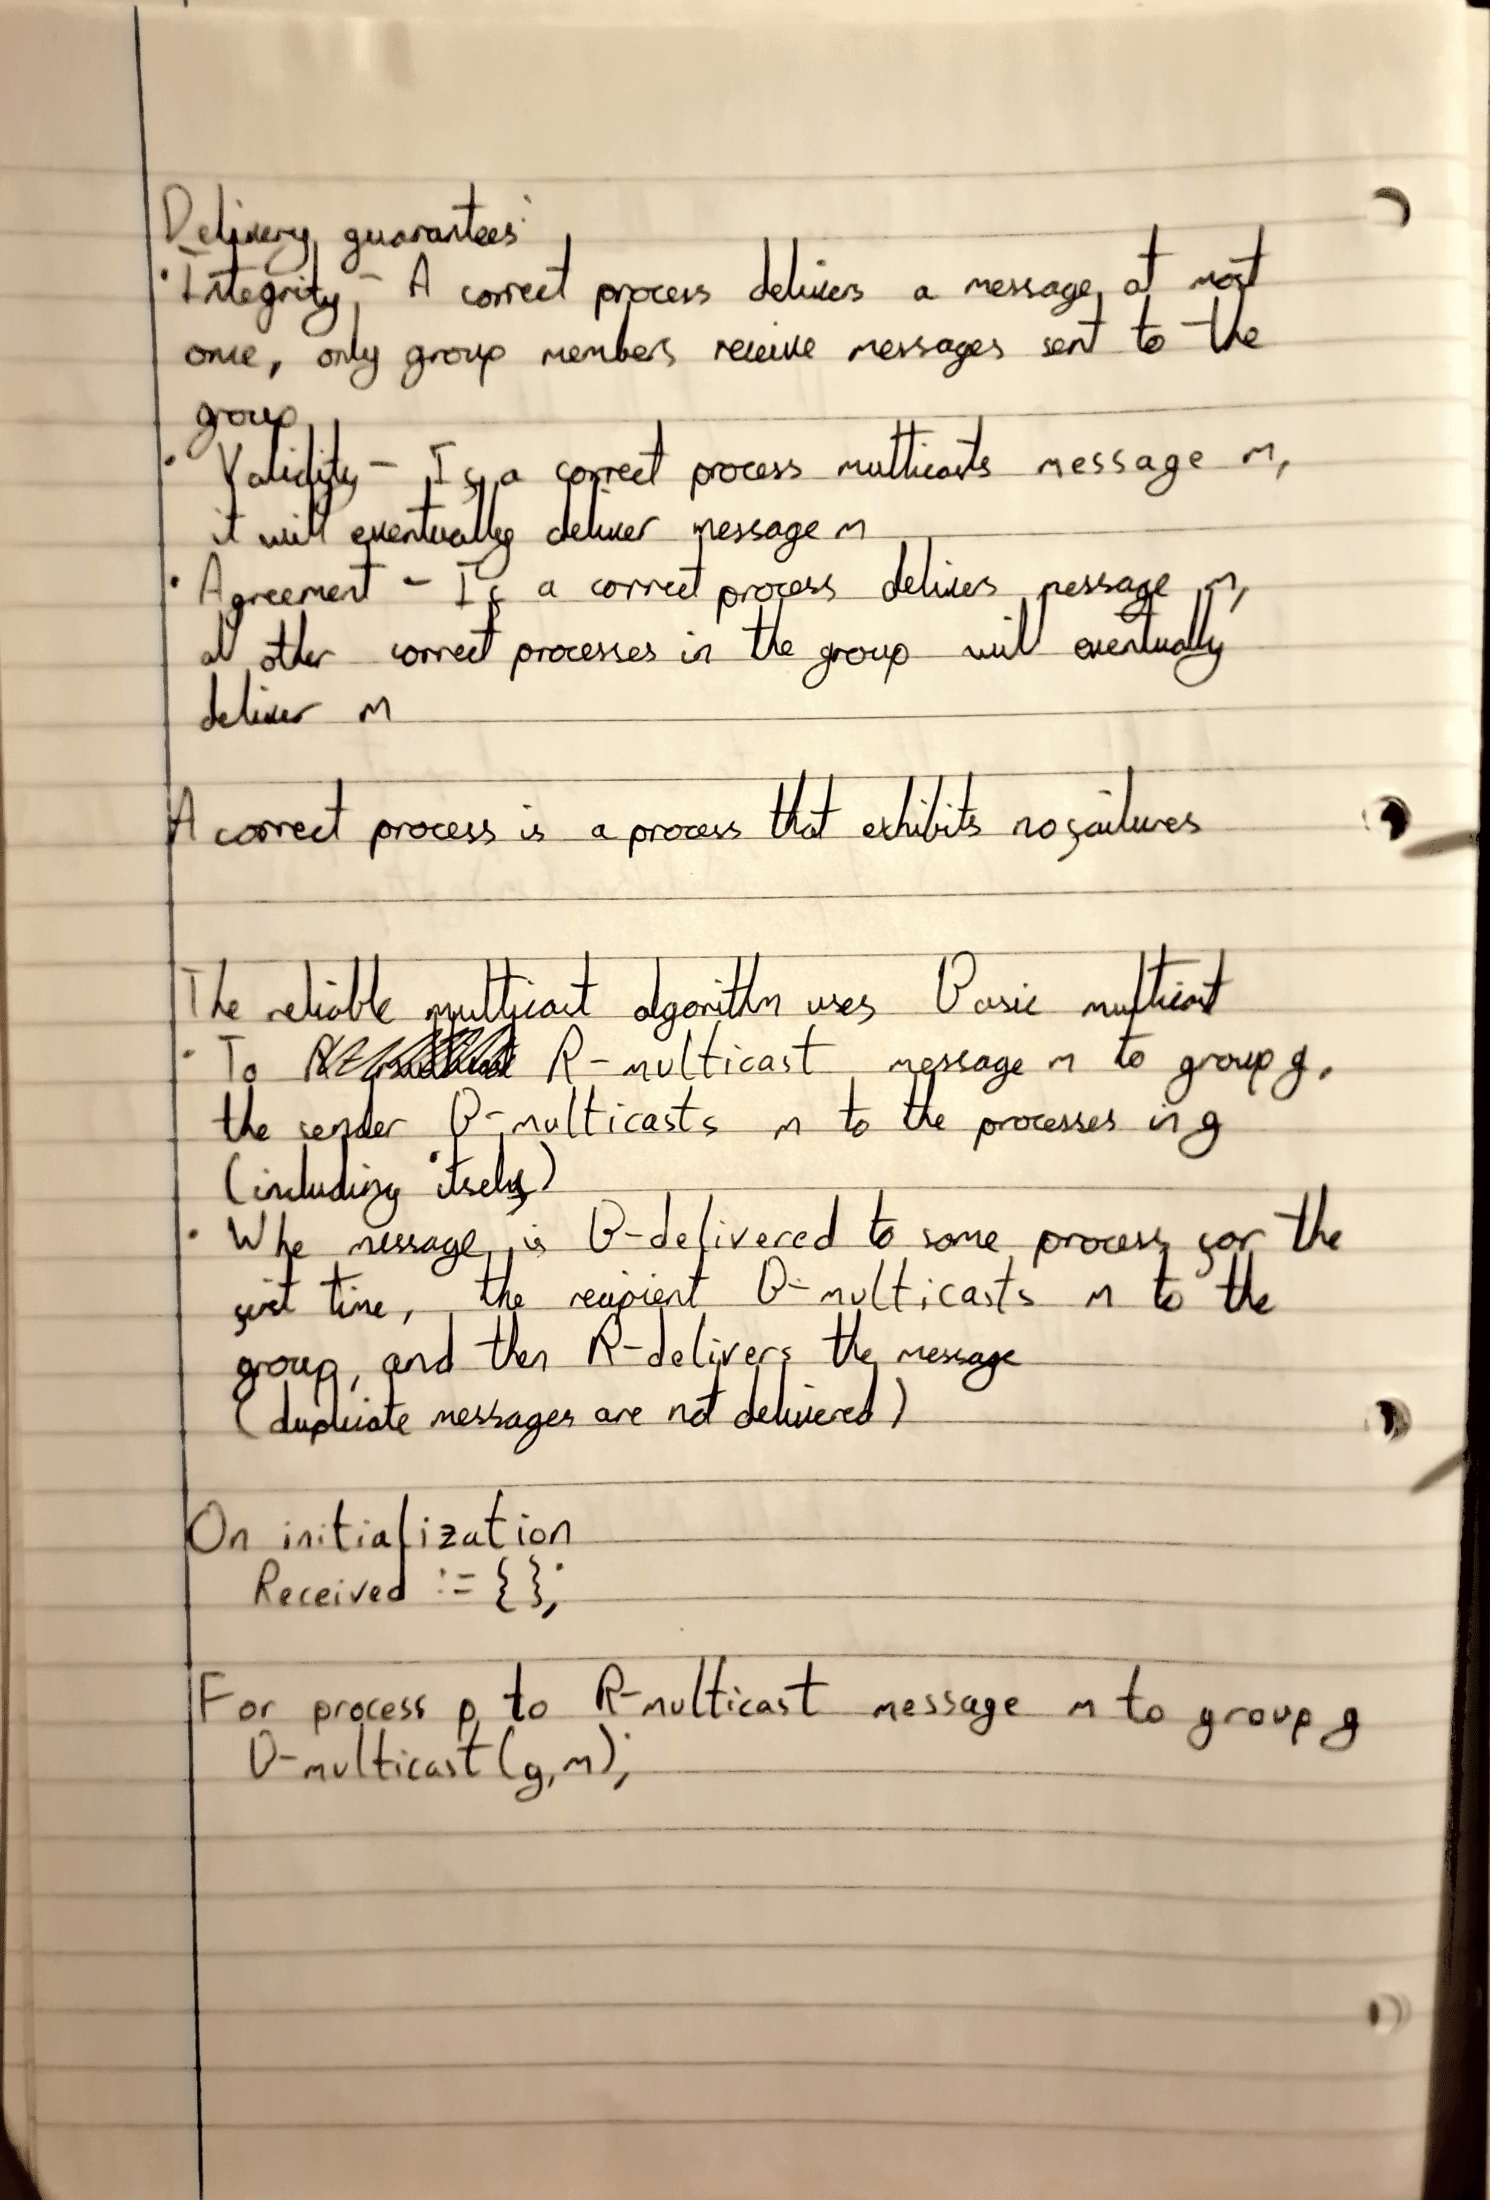 Delivery guarantees:
• Integrity - A correct process delivers a message at most
once, only group members receive messages sent to the
group
• Validity - If a correct process multicasts message m,
it will eventually deliver message m
• Agreement - If a correct process delivers message m,
all other correct processes in the group will eventually
deliver m
A correct process is a process that exhibits no failures
The reliable multicast algorithm uses Basic multicast
• To R-multicast message m to group g,
the sender B-multicasts m to the processes in g
(including itself)
• Whe message is B-delivered to some process for the
first time, the recipient B-multicasts m to the
group, and then R-delivers the message
(duplicate messages are not delivered)
On initialization
Received := {};
For process p to R-multicast message m to group g
B-multicast(g,m);